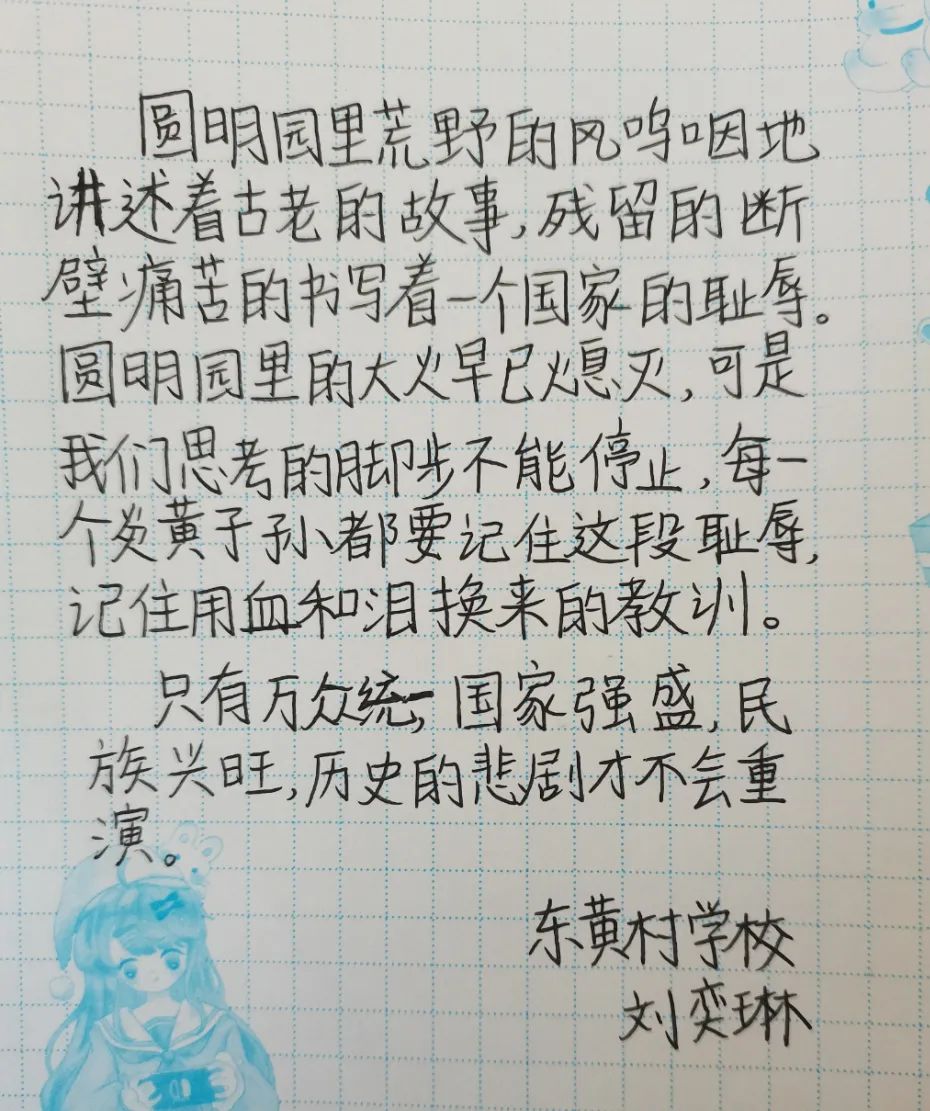 圆明园里荒野的风呜咽地
讲述着古老的故事,残留的断
壁痛苦的书写着一个国家的耻辱。
圆明园里的大火早已熄灭,可是
我们思考的脚步不能停止,每一
个炎黄子孙都要记住这段耻辱,
记住用血和泪换来的教训。
只有万众统一,国家强盛,民
族兴旺,历史的悲剧才不会重
演。
东黄村学校
刘奕琳